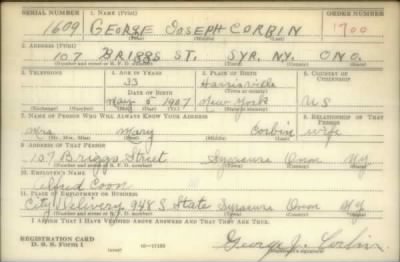 SERIAL NUMBER 1. NAME (Print) ORDER NUMBER
1609 GEORGE JOSEPH CORBIN 1700
(First) (Middle) (Last)
2. ADDRESS (Print)
107 BRIGGS ST. SYR. N.Y. ONO.
(Number and street or R. F. D. number) (Town) (County) (State)
3. TELEPHONE 4. AGE IN YEARS 5. PLACE OF BIRTH 6. COUNTRY OF CITIZENSHIP
33 Harrisville
DATE OF BIRTH (Town or county)
May 5 1907 New York U S
(Exchange) (Number) (Mo.) (Day) (Yr.) (State or country)
7. NAME OF PERSON WHO WILL ALWAYS KNOW YOUR ADDRESS 8. RELATIONSHIP OF THAT PERSON
Mrs Mary Corbin wife
(Mr., Mrs., Miss) (First) (Middle) (Last)
9. ADDRESS OF THAT PERSON
107 Briggs Street Syracuse Onon NY
(Number and street or R. F. D. number) (Town) (County) (State)
10. EMPLOYER'S NAME
Alfred Coon
11. PLACE OF EMPLOYMENT OR BUSINESS
City Delivery 948 S State Syracuse Onon NY
(Number and street or R. F. D. number) (Town) (County) (State)
I AFFIRM THAT I HAVE VERIFIED ABOVE ANSWERS AND THAT THEY ARE TRUE.
REGISTRATION CARD
D. S. S. Form 1 George J. Corbin